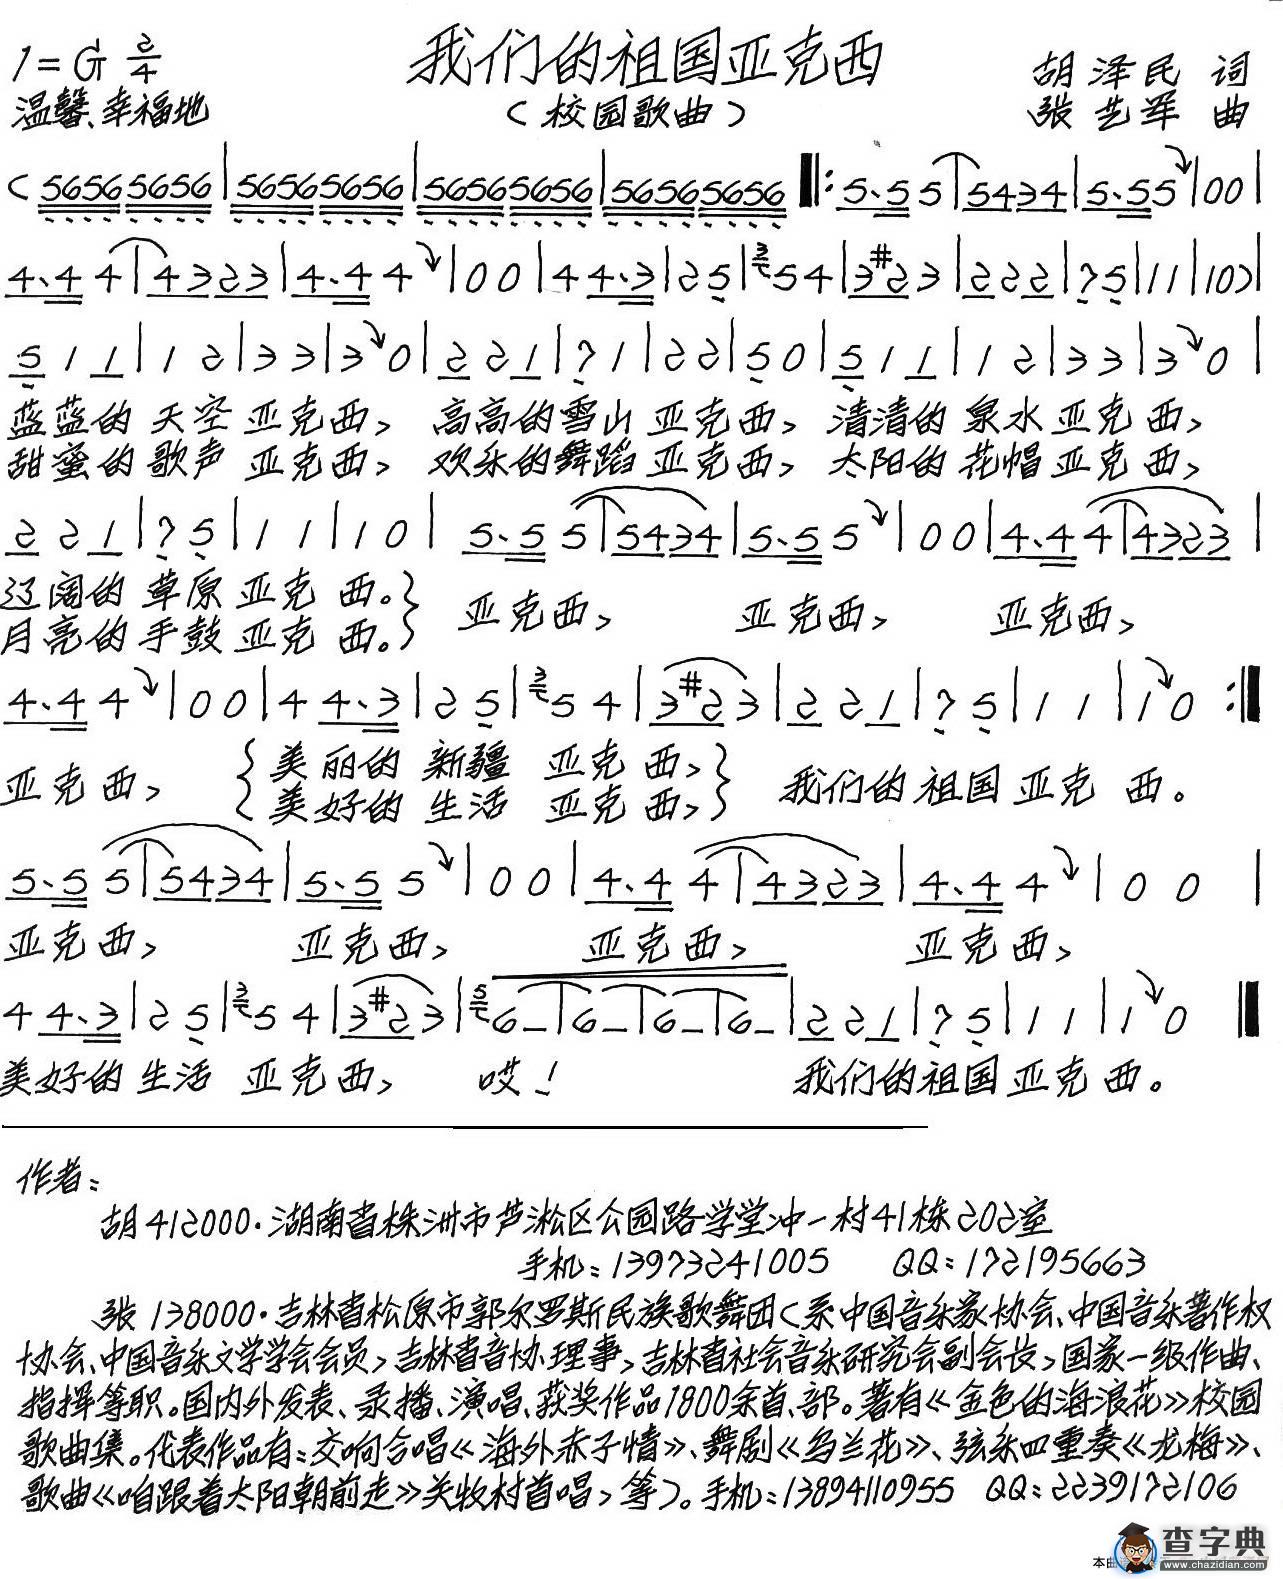 我们的祖国亚克西
1=G 2/4
温馨、幸福地
（校园歌曲）
胡泽民 词
张艺军 曲
( 5656 5656 | 5656 5656 | 5656 5656 | 5656 5656 ‖: 5·5 5 | 5434 | 5·5 5 | 0 0 |
4·4 4 | 4323 | 4·4 4 | 0 0 | 4 4·3 | 2 5 | 3 5 4 | 3 #2 3 | 2 2 2 | 7 5 | 1 1 | 1 0 ) |
5 1 1 | 1 2 | 3 3 | 3 0 | 2 2 1 | 7 1 | 2 2 | 5 0 | 5 1 1 | 1 2 | 3 3 | 3 0 |
蓝蓝的 天空 亚克西, 高高的雪山 亚克西, 清清的 泉水 亚克 西,
甜蜜的 歌声 亚克西, 欢乐的舞蹈 亚克西, 太阳的 花帽 亚克 西,
2 2 1 | 7 5 | 1 1 | 1 0 | 5·5 5 | 5434 | 5·5 5 | 0 0 | 4·4 4 | 4323 |
辽阔的 草原 亚克 西。} 亚克西, 亚克西, 亚克西,
月亮的 手鼓 亚克 西。}
4·4 4 | 0 0 | 4 4·3 | 2 5 | 3 5 4 | 3 #2 3 | 2 2 1 | 7 5 | 1 1 | 1 0 :‖
亚克西, { 美丽的 新疆 亚克 西, } 我们的 祖国 亚克 西。
{ 美好的 生活 亚克 西, }
5·5 5 | 5434 | 5·5 5 | 0 0 | 4·4 4 | 4323 | 4·4 4 | 0 0 |
亚克西, 亚克西, 亚克西, 亚克西,
4 4·3 | 2 5 | 3 5 4 | 3 #2 3 | 5 6 – | 6 – | 6 – | 6 – | 2 2 1 | 7 5 | 1 1 | 1 0 ‖
美好的 生活 亚克西, 哎! 我们的祖国 亚克 西。
作者:
胡412000·湖南省株洲市芦淞区公园路学堂冲一村41栋202室
手机:13973241005 QQ:172195663
张 138000·吉林省松原市郭尔罗斯民族歌舞团(系中国音乐家协会、中国音乐著作权
协会、中国音乐文学学会会员,吉林省音协理事,吉林省社会音乐研究会副会长,国家一级作曲、
指挥等职。国内外发表、录播、演唱、获奖作品1800余首、部。著有《金色的海浪花》校园
歌曲集。代表作品有:交响合唱《海外赤子情》、舞剧《乌兰花》、弦乐四重奏《龙梅》、
歌曲《咱跟着太阳朝前走》关牧村首唱,等)。手机:13894110955 QQ:2239172106
本曲
查字典
www.chazidian.com